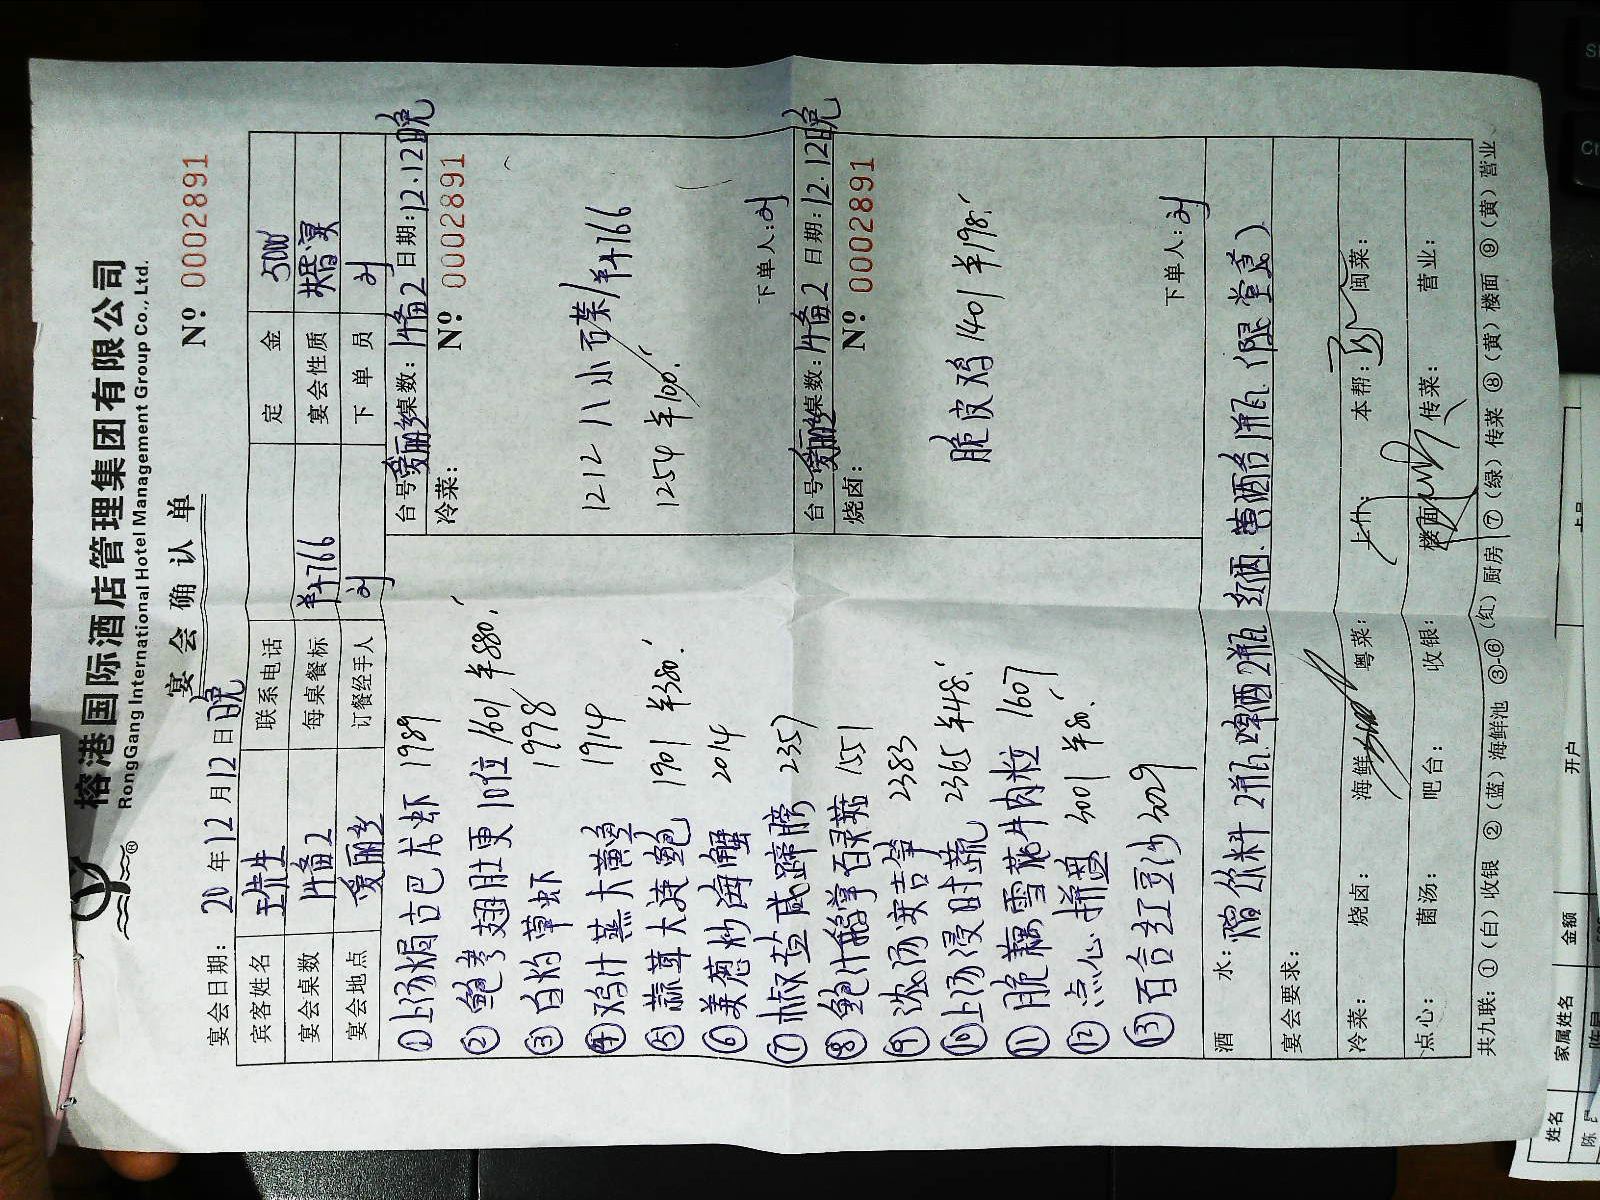 榕港国际酒店管理集团有限公司
RongGang International Hotel Management Group Co., Ltd.
宴会确认单
宴会日期: 20 年12月12日晚
Nº 0002891
宾客姓名 联系电话 定金 5000
宴会桌数 14备2 每桌餐标 ¥4766 宴会性质
宴会地点 爱丽丝 订餐经手人 刘 下单员 刘
①上汤焗古巴龙虾 1989
② 翅肚更10位 1601 ¥880.
③白灼草虾 1998
④鸡汁蒸大黄鱼 1914
⑤蒜茸大连鲍 1901 ¥380.
⑥姜葱炒海蟹 2014
⑦椒盐咸蹄膀 2357
⑧鲍汁鹅掌百灵菇 1551
⑨浓汤 笋 2383
⑩上汤浸时蔬 2365 ¥48.
⑪脆藕雪花牛肉粒 1607
⑫点心拼盘 5001 ¥80.
⑬百合红豆沙 5029
台号 爱丽丝 桌数: 14备2 日期: 12.12晚
冷菜: Nº 0002891
1212 八小 碟/¥4766
1254 ¥100.
下单人: 刘
台号 爱丽丝 桌数: 14备2 日期: 12.12晚
烧卤: Nº 0002891
脆皮鸡 1401 ¥198.
下单人: 刘
酒水: 赠饮料2瓶.啤酒2瓶 红酒.黄酒各1瓶 (限堂 )
宴会要求:
冷菜: 烧卤: 海鲜 粤菜: 上什: 本帮: 闽菜:
点心: 菌汤: 吧台: 收银: 楼面 传菜: 营业:
共九联: ①(白)收银 ②(蓝)海鲜池 ③-⑥(红)厨房 ⑦(绿)传菜 ⑧(黄)楼面 ⑨(黄)营业
姓名 家属姓名 金额 开户
陈